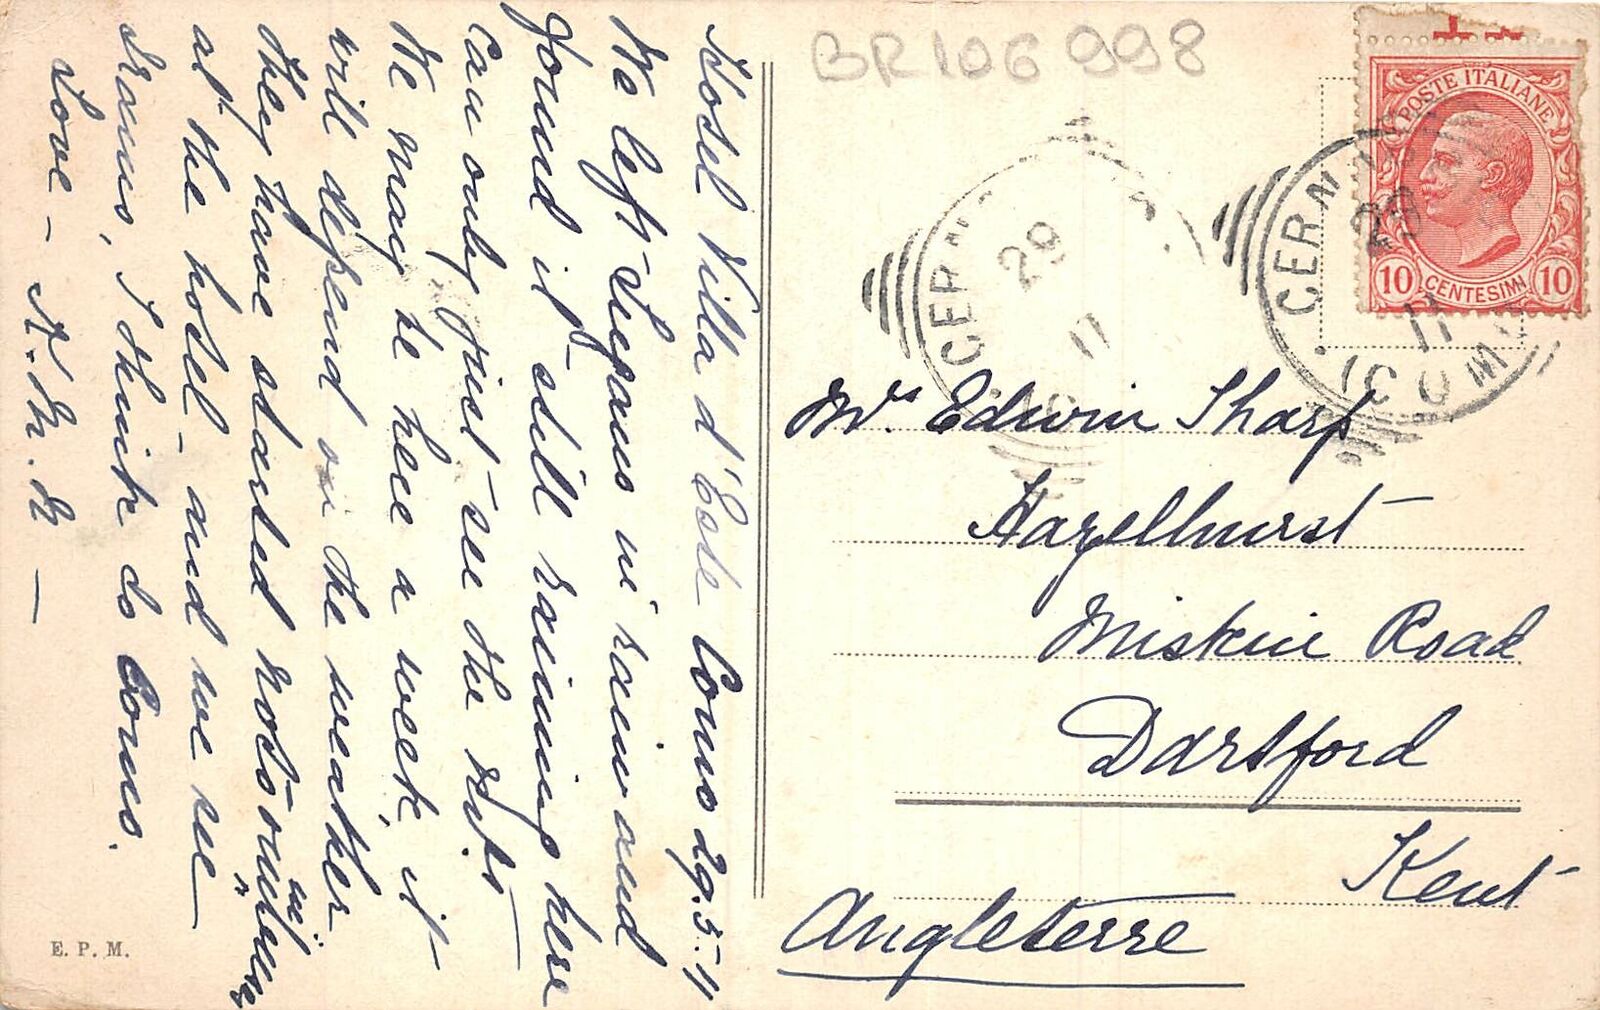 Hotel Villa d'Este Como 29.5.11
We left Lugano in rain and
found it still raining here
Can only just see the hills
We may be here a week, it
will depend on the weather
They have started roto-
in
at the hotel - and we see
trams, I think to Como.
Love - A.M.M -
BR106998
POSTE ITALIANE
10 CENTESIMI 10
CERNOBBIO
29
11
(COMO)
CERNO
29
11
Mrs Edwin Sharp
Hazelhurst
Miskin Road
Dartford
Kent
Angleterre
E. P. M.